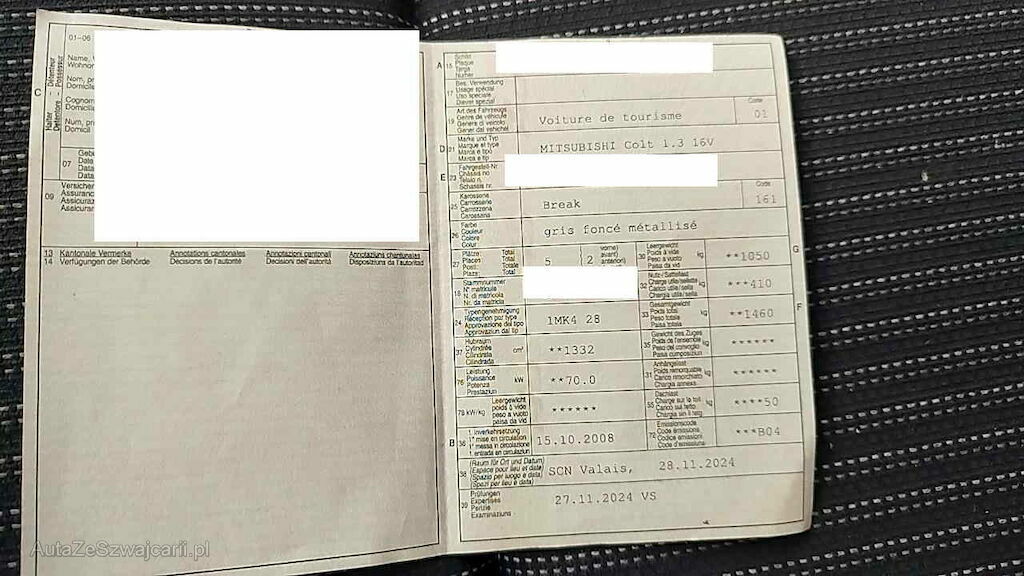 01-06
C
Halter
Détenteur
Detentore
Possessur
Name,
Wohnor
Nom, pr
Domicile
Cognom
Domicilio
Num, pr
Domicil
07
Gebu
Data
Data
Data
09
Versicher
Assuranc
Assicuraz
Assicuran
13 Kantonale Vermerke Annotations cantonales Annotazioni cantonali Annotaziuns chantunalas
14 Verfügungen der Behörde Décisions de l'autorité Decisioni dell'autorità Disposiziuns da l'autoritad
A 15 Schild
Plaque
Targa
Numer
17 Bes. Verwendung
Usage spécial
Uso speciale
Diever spezial
19 Art des Fahrzeugs
Genre de véhicule
Genere di veicolo
Gener dal vehichel
Voiture de tourisme
Code
01
D 21 Marke und Typ
Marque et type
Marca e tipo
Marca e tip
MITSUBISHI Colt 1.3 16V
E 23 Fahrgestell-Nr.
Châssis no
Telaio n.
Schassis nr.
25 Karosserie
Carrosserie
Carrozzeria
Carossaria
Break
Code
161
26 Farbe
Couleur
Colore
Colur
gris foncé métallisé
27 Plätze: Total
Places: Total
Posti: Totale
Plazs: Total
5
vorne)
avant)
anteriori)
2
30 Leergewicht
Poids à vide
Peso a vuoto
Paisa da vid
kg
**1050
G
18 Stammnummer
N° matricule
N. di matricola
Nr. da matricla
32 Nutz-/Sattellast
Charge utile/sellette
Carico utile/sella
Chargia utila/sella
kg
***410
24 Typengenehmigung
Réception par type
Approvazione del tipo
Approvaziun dal tip
1MK4 28
33 Gesamtgewicht
Poids total
Peso totale
Paisa totala
kg
**1460
F
37 Hubraum
Cylindrée
Cilindrata
Cilindrada
cm³
**1332
35 Gewicht des Zuges
Poids de l'ensemble
Peso del convoglio
Paisa cumposiziun
kg
******
76 Leistung
Puissance
Potenza
Prestaziun
kW
**70.0
31 Anhängelast
Poids remorquable
Carico rimorchiato
Chargia annexa
kg
******
78 kW/kg
Leergewicht
poids à vide
peso a vuoto
paisa da vid
******
55 Dachlast
Charge sur le toit
Carico sul tetto
Chargia sin il tetg
kg
****50
B 36 1. Inverkehrsetzung
1re mise en circulation
1a messa in circolazione
1. entrada en circulaziun
15.10.2008
72 Emissionscode
Code émissions
Codice emissioni
Code d'emissiuns
***B04
38 (Raum für Ort und Datum)
(Espace pour lieu et date)
(Spazio per luogo e data)
(Spazi per lieu e data)
SCN Valais, 28.11.2024
39 Prüfungen
Expertises
Perizie
Examinaziuns
27.11.2024 VS
AutaZeSzwajcarii.pl